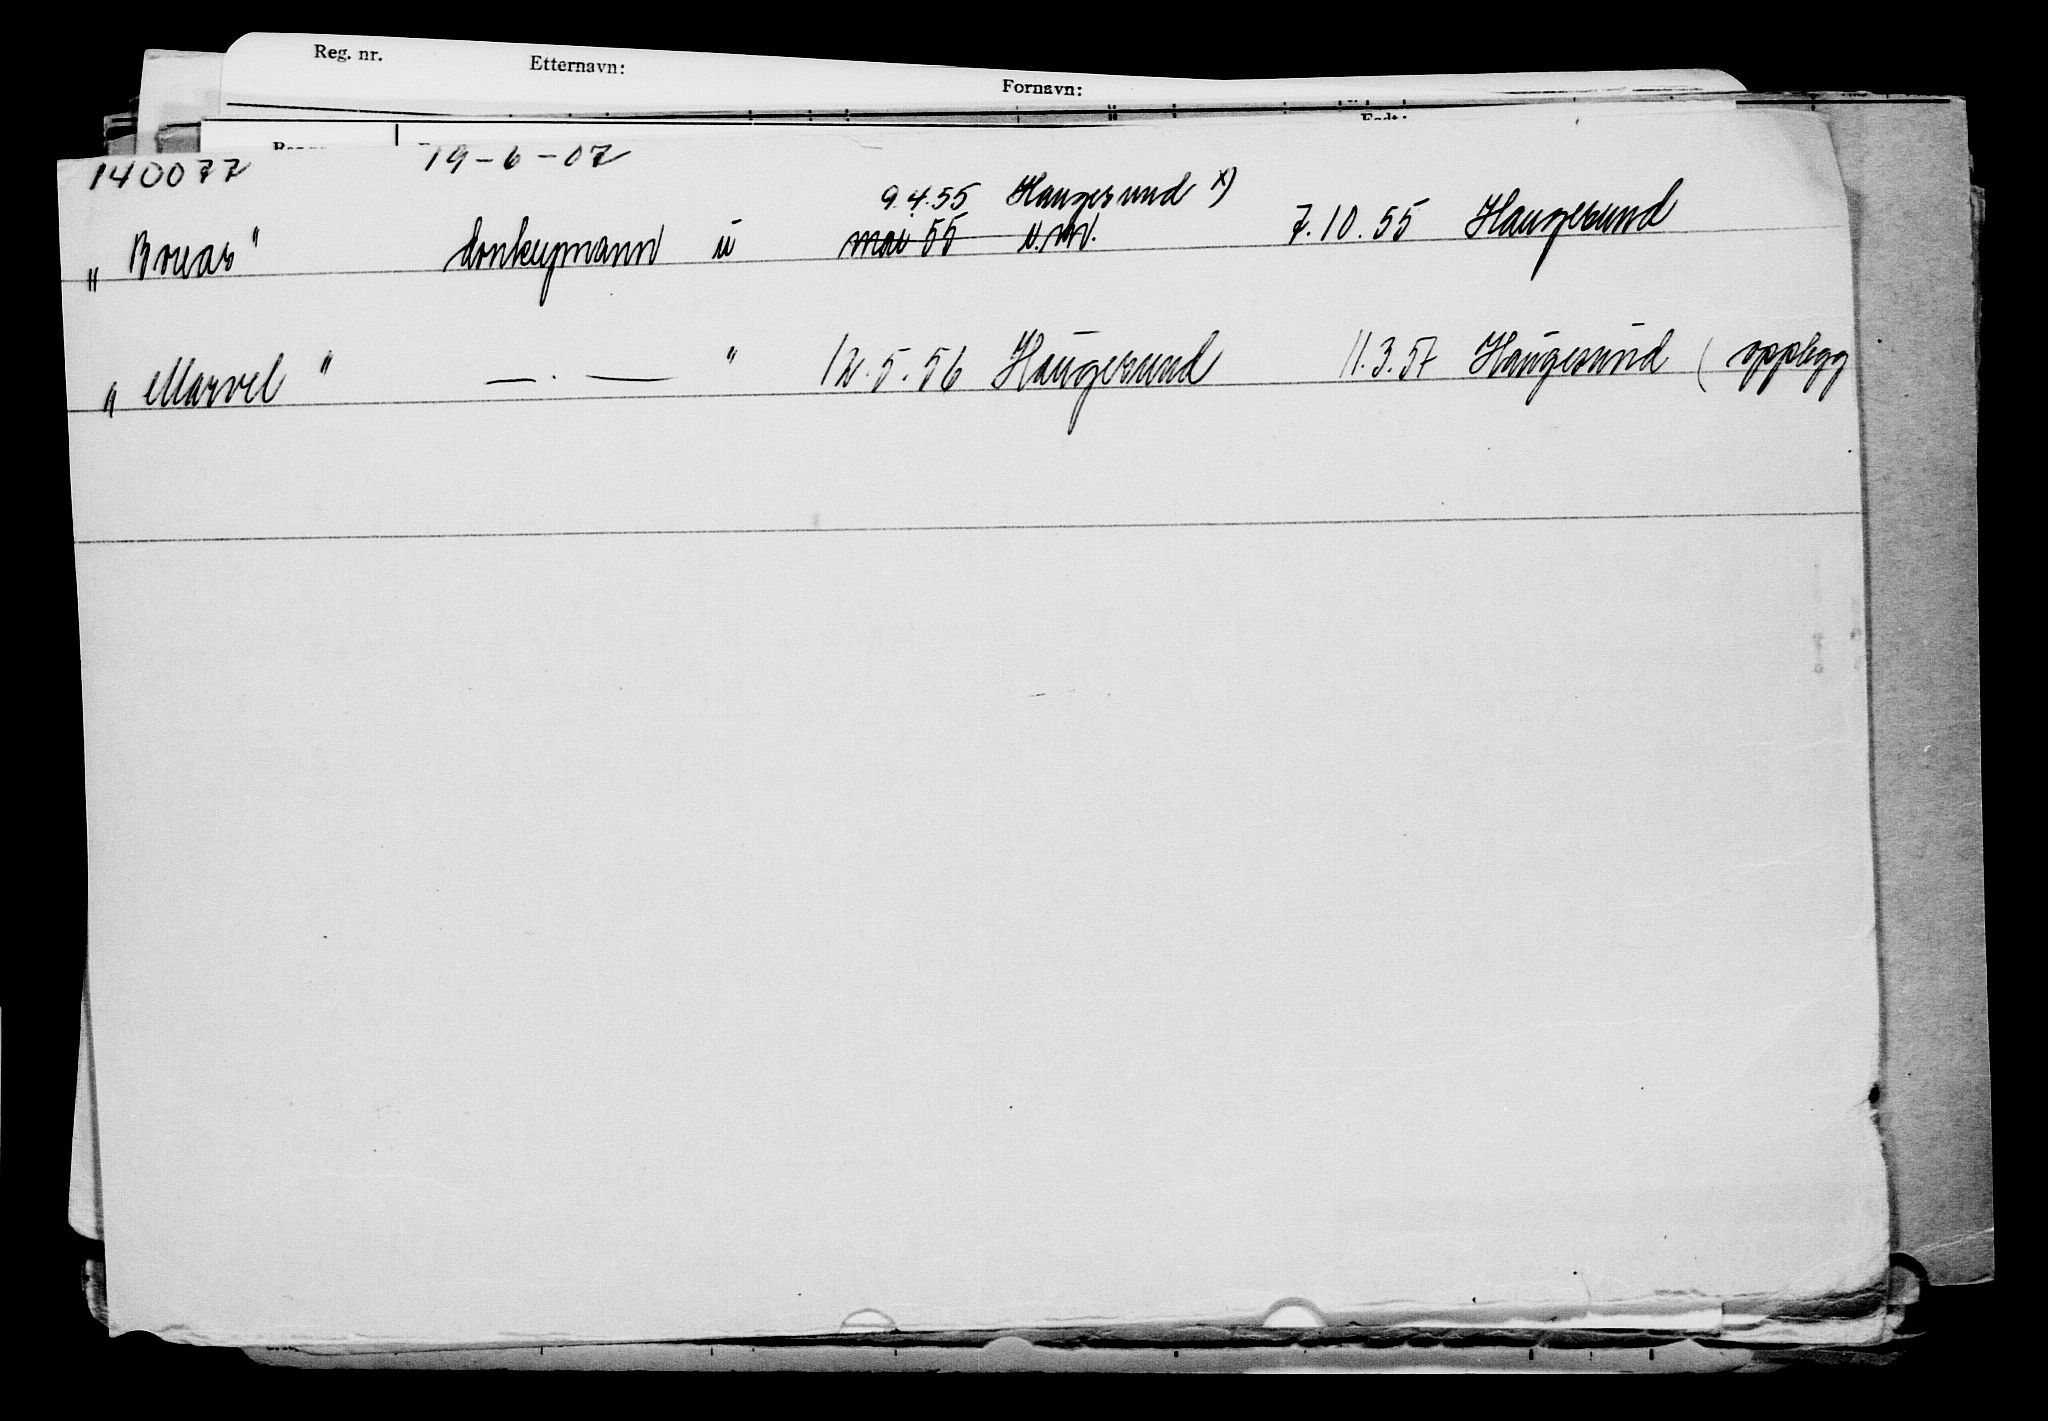 Reg. nr. Etternavn: Fornavn:
140077 19-6-07
9.4.55 Haugesund x)
„ " donkeymann u mai 55 7.10.55 Haugesund
„ Marvel " — . — " 12.5.56 Haugesund 11.3.57 Haugesund ( opplegg